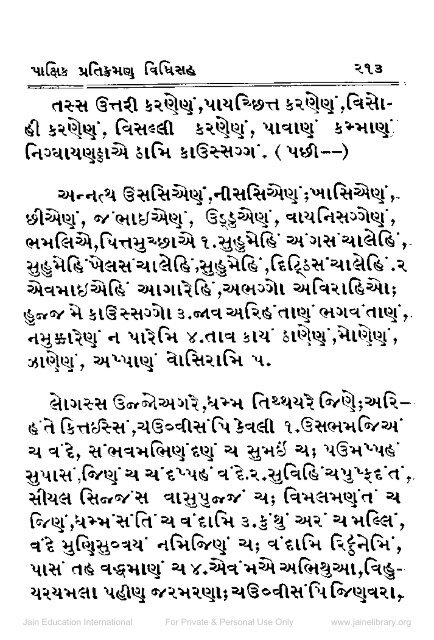 પાક્ષિક પ્રતિક્રમણ વિધિસહ ૨૧૩
તસ્સ ઉત્તરી કરણેણં,પાયચ્છિત્ત કરણેણં,વિસો-
હી કરણેણં, વિસલ્લી કરણેણં, પાવાણં કમ્માણં
નિગ્ઘાયણટ્ઠાએ ઠામિ કાઉસ્સગ્ગં. (પછી--)
અન્નત્થ ઉસસિએણં,નીસસિએણં;ખાસિએણં,
છીએણં, જંભાઇએણં, ઉડ્ડુએણં, વાયનિસગ્ગેણં,
ભમલિએ,પિત્તમુચ્છાએ ૧.સુહુમેહિં અંગસંચાલેહિં,
સુહુમેહિંખેલસંચાલેહિં,સુહુમેહિં,દિટ્ઠિસંચાલેહિં.૨
એવમાઇએહિં આગારેહિં,અભગ્ગો અવિરાહિઓ;
હુજ્જ મે કાઉસ્સગ્ગો ૩.જાવ અરિહંતાણં ભગવંતાણં,
નમુક્કારેણં ન પારેમિ ૪.તાવ કાયં ઠાણેણં,મોણેણં,
ઝાણેણં, અપ્પાણં વોસિરામિ ૫.
લોગસ્સ ઉજ્જોઅગરે,ધમ્મ તિથ્થયરે જિણે;અરિ-
હંતે કિત્તઇસ્સં,ચઉવ્વીસંપિ કેવલી ૧.ઉસભમજિઅં
ચ વંદે, સંભવમભિણંદણં ચ સુમઈં ચ; પઉમપ્પહં
સુપાસં,જિણં ચ ચંદપ્પહં વંદે.૨.સુવિહિંચપુપ્ફદંતં,
સીયલ સિજ્જંસ વાસુપુજ્જં ચ; વિમલમણંતં ચ
જિણં,ધમ્મંસંતિં ચ વંદામિ ૩.કુંથું અરં ચ મલ્લિં,
વંદે મુણિસુવ્વયં નમિજિણં ચ; વંદામિ રિટ્ઠનેમિં,
પાસં તહ વદ્ધમાણં ચ ૪.એવંમએ અભિથુઆ,વિહુ-
યરયમલા પહીણ જરમરણા;ચઉવ્વીસંપિજિણવરા,
Jain Education International For Private & Personal Use Only www.jainelibrary.org